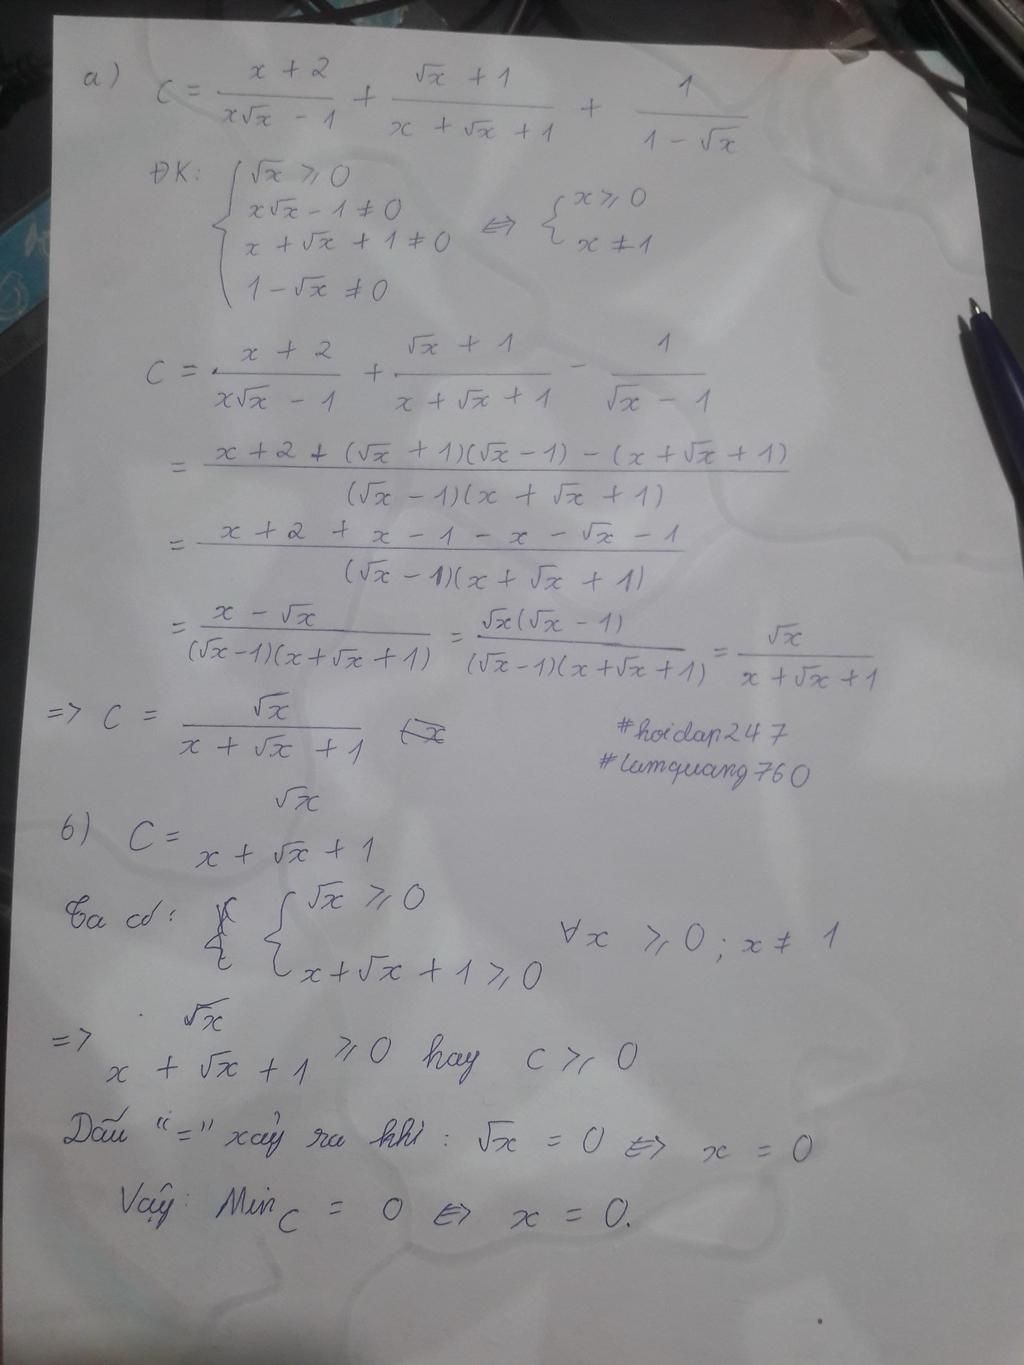 a) C = (x + 2)/(x√x - 1) + (√x + 1)/(x + √x + 1) + 1/(1 - √x)
ĐK: { √x ⩾ 0
x√x - 1 ≠ 0
x + √x + 1 ≠ 0
1 - √x ≠ 0
⇔ { x ⩾ 0
x ≠ 1
C = (x + 2)/(x√x - 1) + (√x + 1)/(x + √x + 1) - 1/(√x - 1)
= (x + 2 + (√x + 1)(√x - 1) - (x + √x + 1))/((√x - 1)(x + √x + 1))
= (x + 2 + x - 1 - x - √x - 1)/((√x - 1)(x + √x + 1))
= (x - √x)/((√x - 1)(x + √x + 1)) = (√x(√x - 1))/((√x - 1)(x + √x + 1)) = √x/(x + √x + 1)
=> C = √x/(x + √x + 1)
#hoidap247
#lamquang760
b) C = √x/(x + √x + 1)
Ta có: { √x ⩾ 0
x + √x + 1 ⩾ 0
∀x ⩾ 0; x ≠ 1
=> √x/(x + √x + 1) ⩾ 0 hay C ⩾ 0
Dấu "=" xảy ra khi: √x = 0 ⇔ x = 0
Vậy: Min C = 0 ⇔ x = 0.